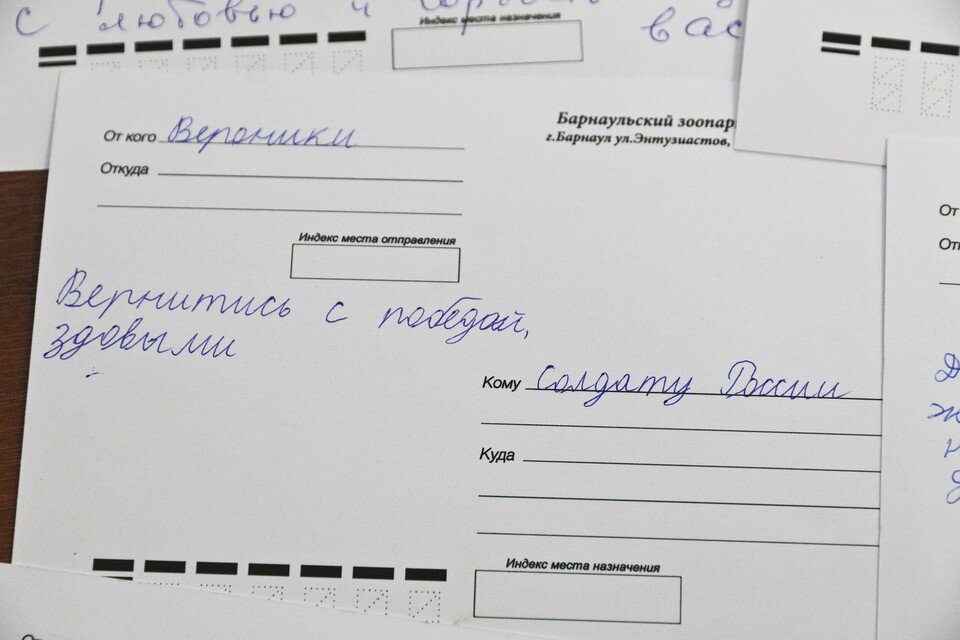 с любовью и
Индекс места назначения
вас
От кого Вероники
Барнаульский зоопар
г.Барнаул ул.Энтузиастов,
Откуда
Индекс места отправления
Вернитись с победой,
здовыми
Кому Солдату России
Куда
Индекс места назначения
От
От